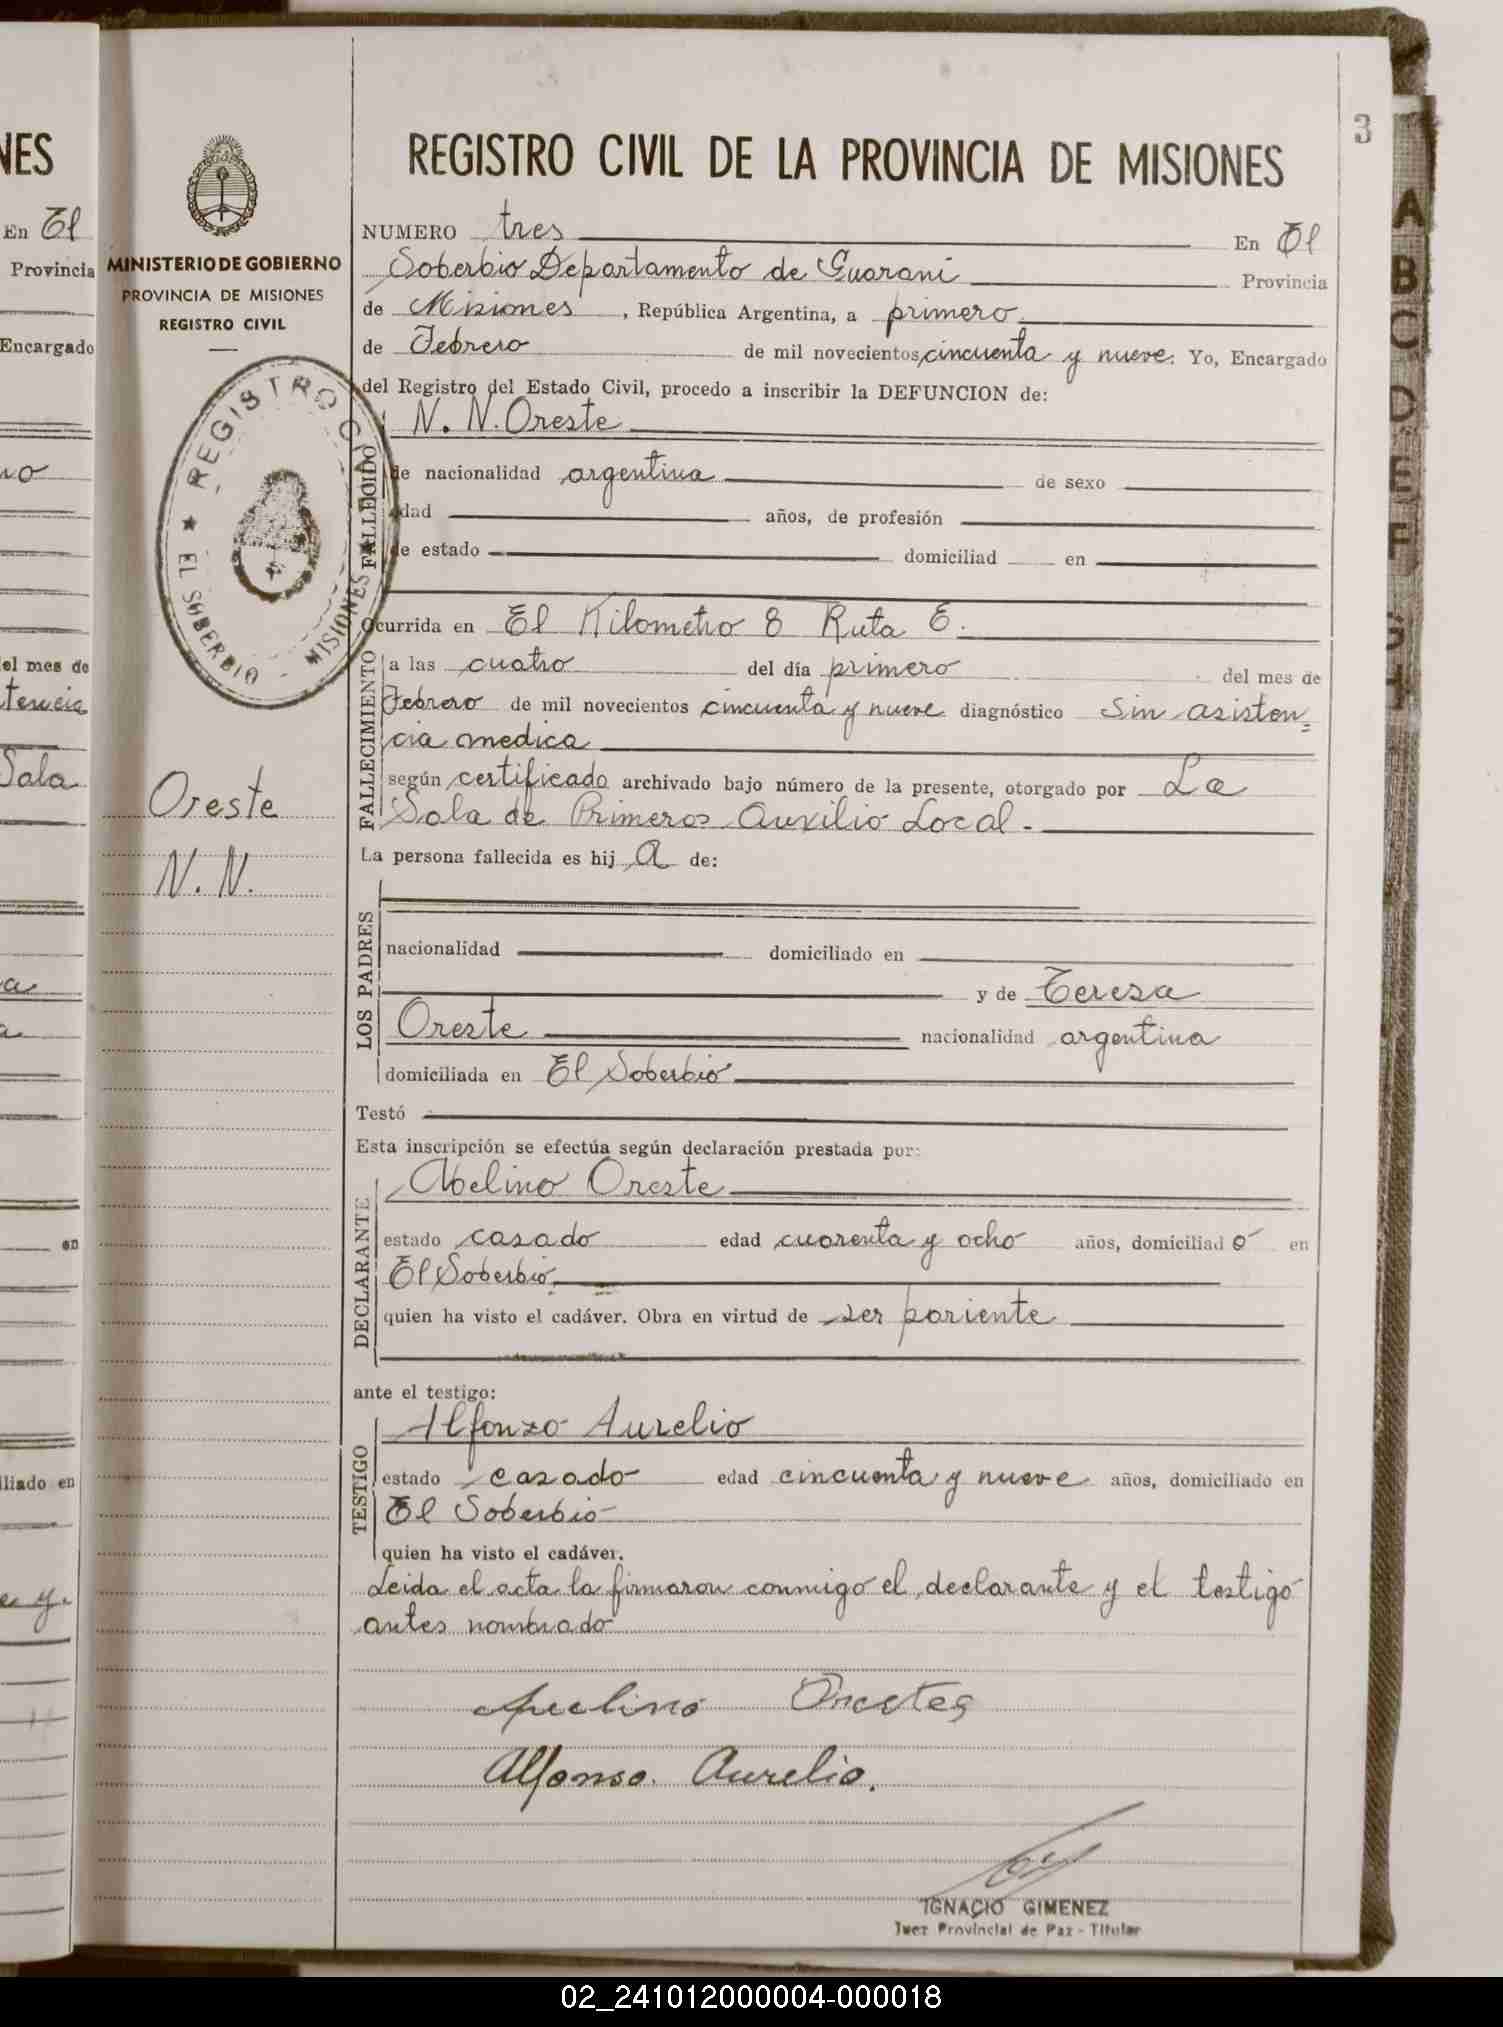 3
REGISTRO CIVIL DE LA PROVINCIA DE MISIONES
MINISTERIO DE GOBIERNO
PROVINCIA DE MISIONES
REGISTRO CIVIL
REGISTRO CIVIL
EL SOBERBIO - MISIONES
Oreste
N. N.
NUMERO tres En El
Soberbio Departamento de Guarani Provincia
de Misiones, República Argentina, a primero
de Febrero de mil novecientos cincuenta y nueve. Yo, Encargado
del Registro del Estado Civil, procedo a inscribir la DEFUNCION de:
FALLECIDO
N. N. Oreste
de nacionalidad argentina de sexo
edad años, de profesión
de estado domiciliad en
Ocurrida en El Kilometro 8 Ruta 6.
FALLECIMIENTO
a las cuatro del día primero del mes de
Febrero de mil novecientos cincuenta y nueve diagnóstico sin asisten=
cia medica
según certificado archivado bajo número de la presente, otorgado por La
Sala de Primeros Auxilio Local.
La persona fallecida es hij a de:
LOS PADRES
nacionalidad domiciliado en
y de Teresa
Oreste nacionalidad argentina
domiciliada en El Soberbio
Testó
Esta inscripción se efectúa según declaración prestada por:
DECLARANTE
Abelino Oreste
estado casado edad cuarenta y ocho años, domiciliad o en
El Soberbio
quien ha visto el cadáver. Obra en virtud de ser pariente
ante el testigo:
TESTIGO
Alfonzo Aurelio
estado casado edad cincuenta y nueve años, domiciliado en
El Soberbio
quien ha visto el cadáver.
Leida el acta la firmaron conmigo el declarante y el testigo
antes nombrado
Avelino Orestes
Alfonso. Aurelio.
IGNACIO GIMENEZ
Juez Provincial de Paz - Titular
NES
En El
Provincia
Encargado
el mes de
Sala
en
A
B
C
D
E
F
G
H
02_241012000004-000018